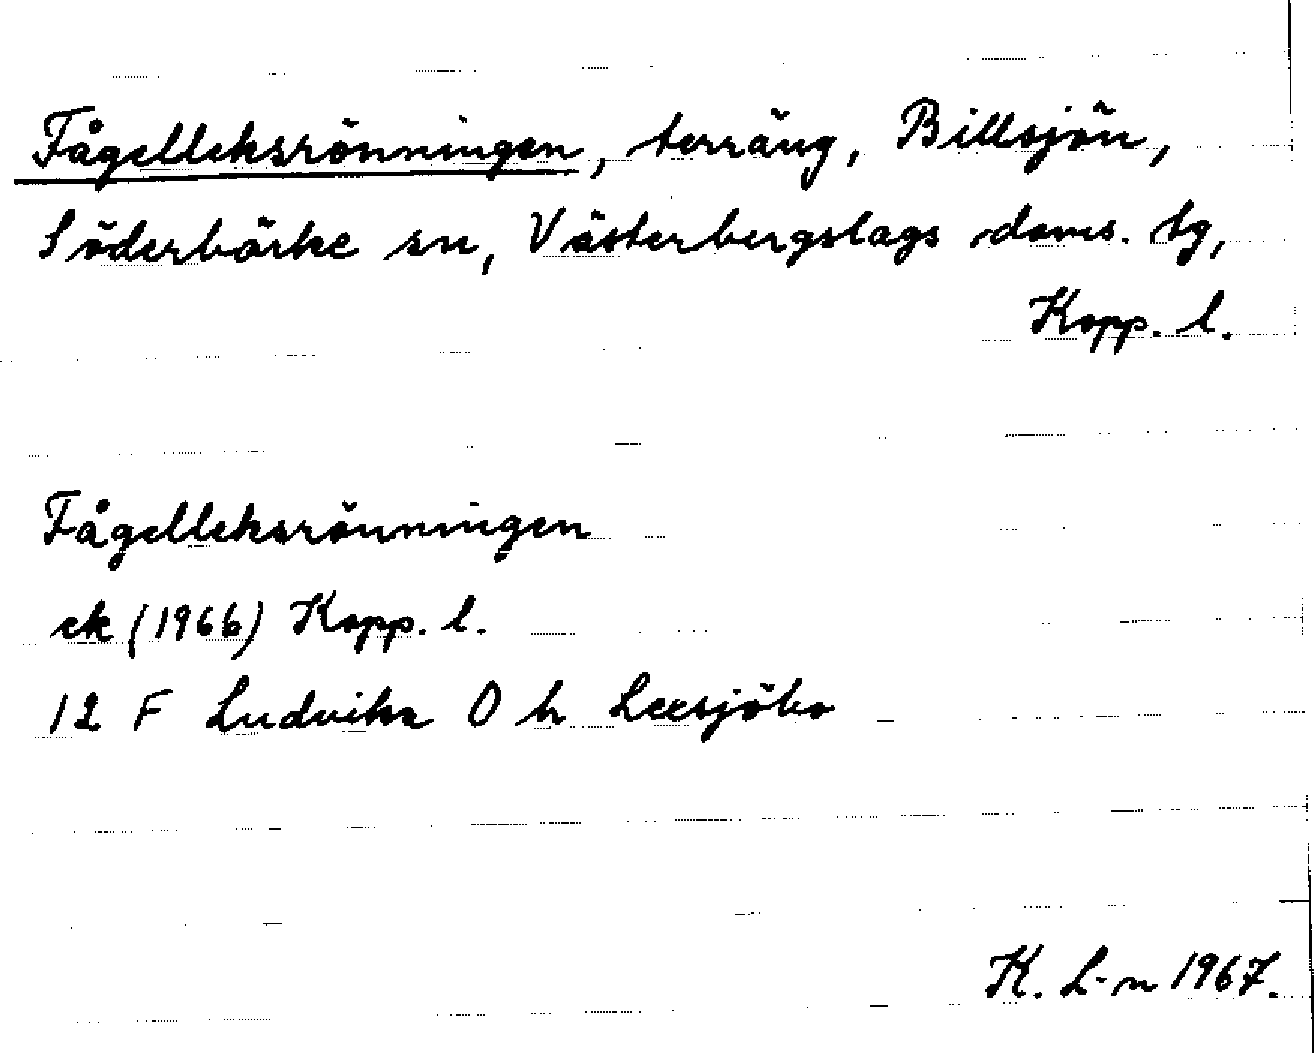 Fågelleksrönningen, terräng, Billsjön,
Söderbärke sn, Västerbergslags doms. tg,
Kopp. l.
Fågelleksrönningen
ek (1966) Kopp. l.
12 F Ludvika 0 h Leesjöbo
K. L-n 1967.